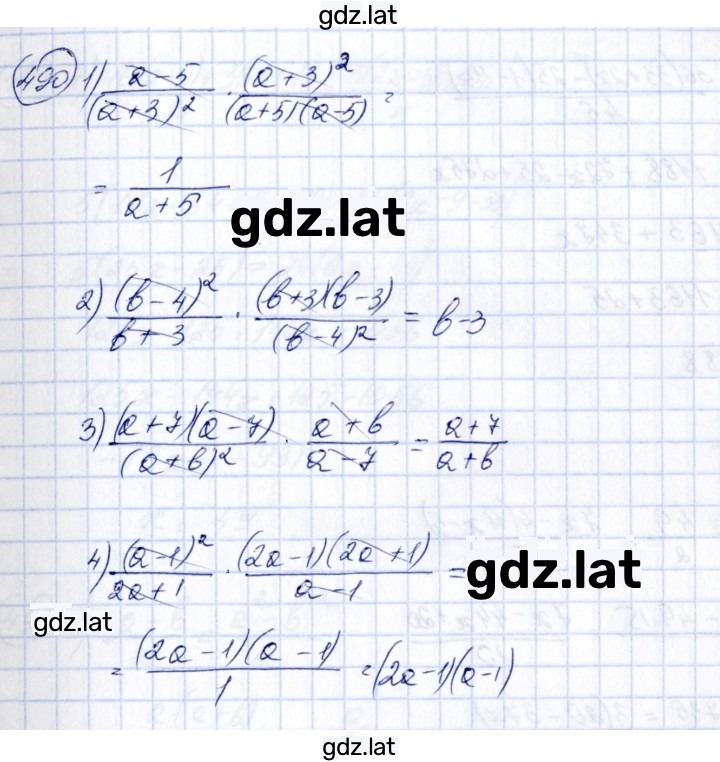 gdz.lat
490 1) (a-5)/(a+3)² · (a+3)²/((a+5)(a-5)) =
= 1/(a+5)
gdz.lat
2) (b-4)²/(b+3) · ((b+3)(b-3))/(b-4)² = b-3
3) ((a+7)(a-7))/(a+b)² · (a+b)/(a-7) = (a+7)/(a+b)
4) (a-1)²/(2a+1) · ((2a-1)(2a+1))/(a-1) =
gdz.lat
gdz.lat
= ((2a-1)(a-1))/1 = (2a-1)(a-1)
gdz.lat